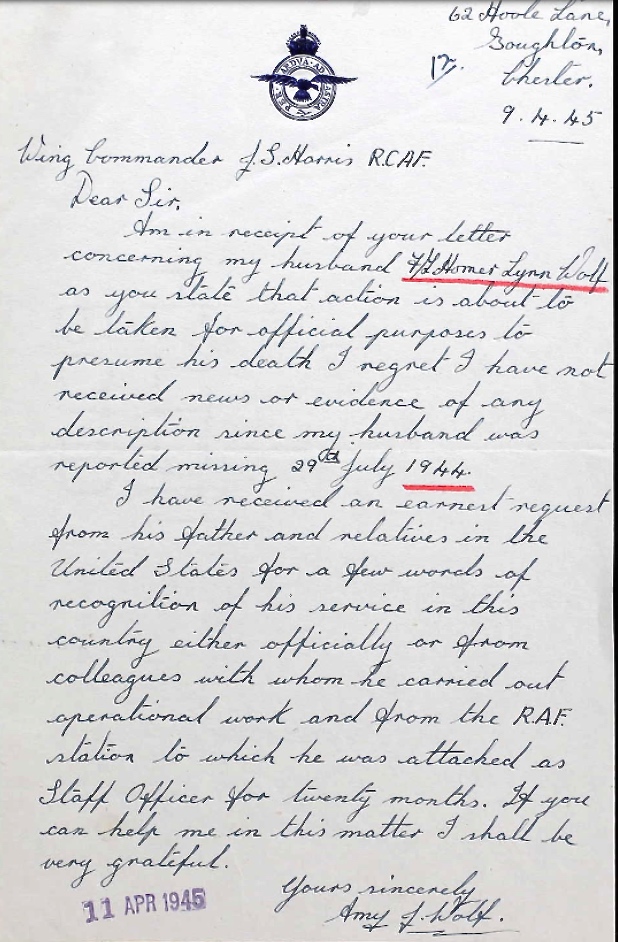 62 Hoole Lane,
Boughton,
12.
Chester.
9.4.45
PER ARDVA AD ASTRA
Wing Commander J.S. Harris R.C.A.F.
Dear Sir,
Am in receipt of your letter
concerning my husband F/L Homer Lynn Wolf
as you state that action is about to
be taken for official purposes to
presume his death I regret I have not
received news or evidence of any
description since my husband was
reported missing 29th July 1944.
I have received an earnest request
from his father and relatives in the
United States for a few words of
recognition of his service in this
country either officially or from
colleagues with whom he carried out
operational work and from the R.A.F.
station to which he was attached as
Staff Officer for twenty months. If you
can help me in this matter I shall be
very grateful.
Yours sincerely
Amy J. Wolf.
11 APR 1945